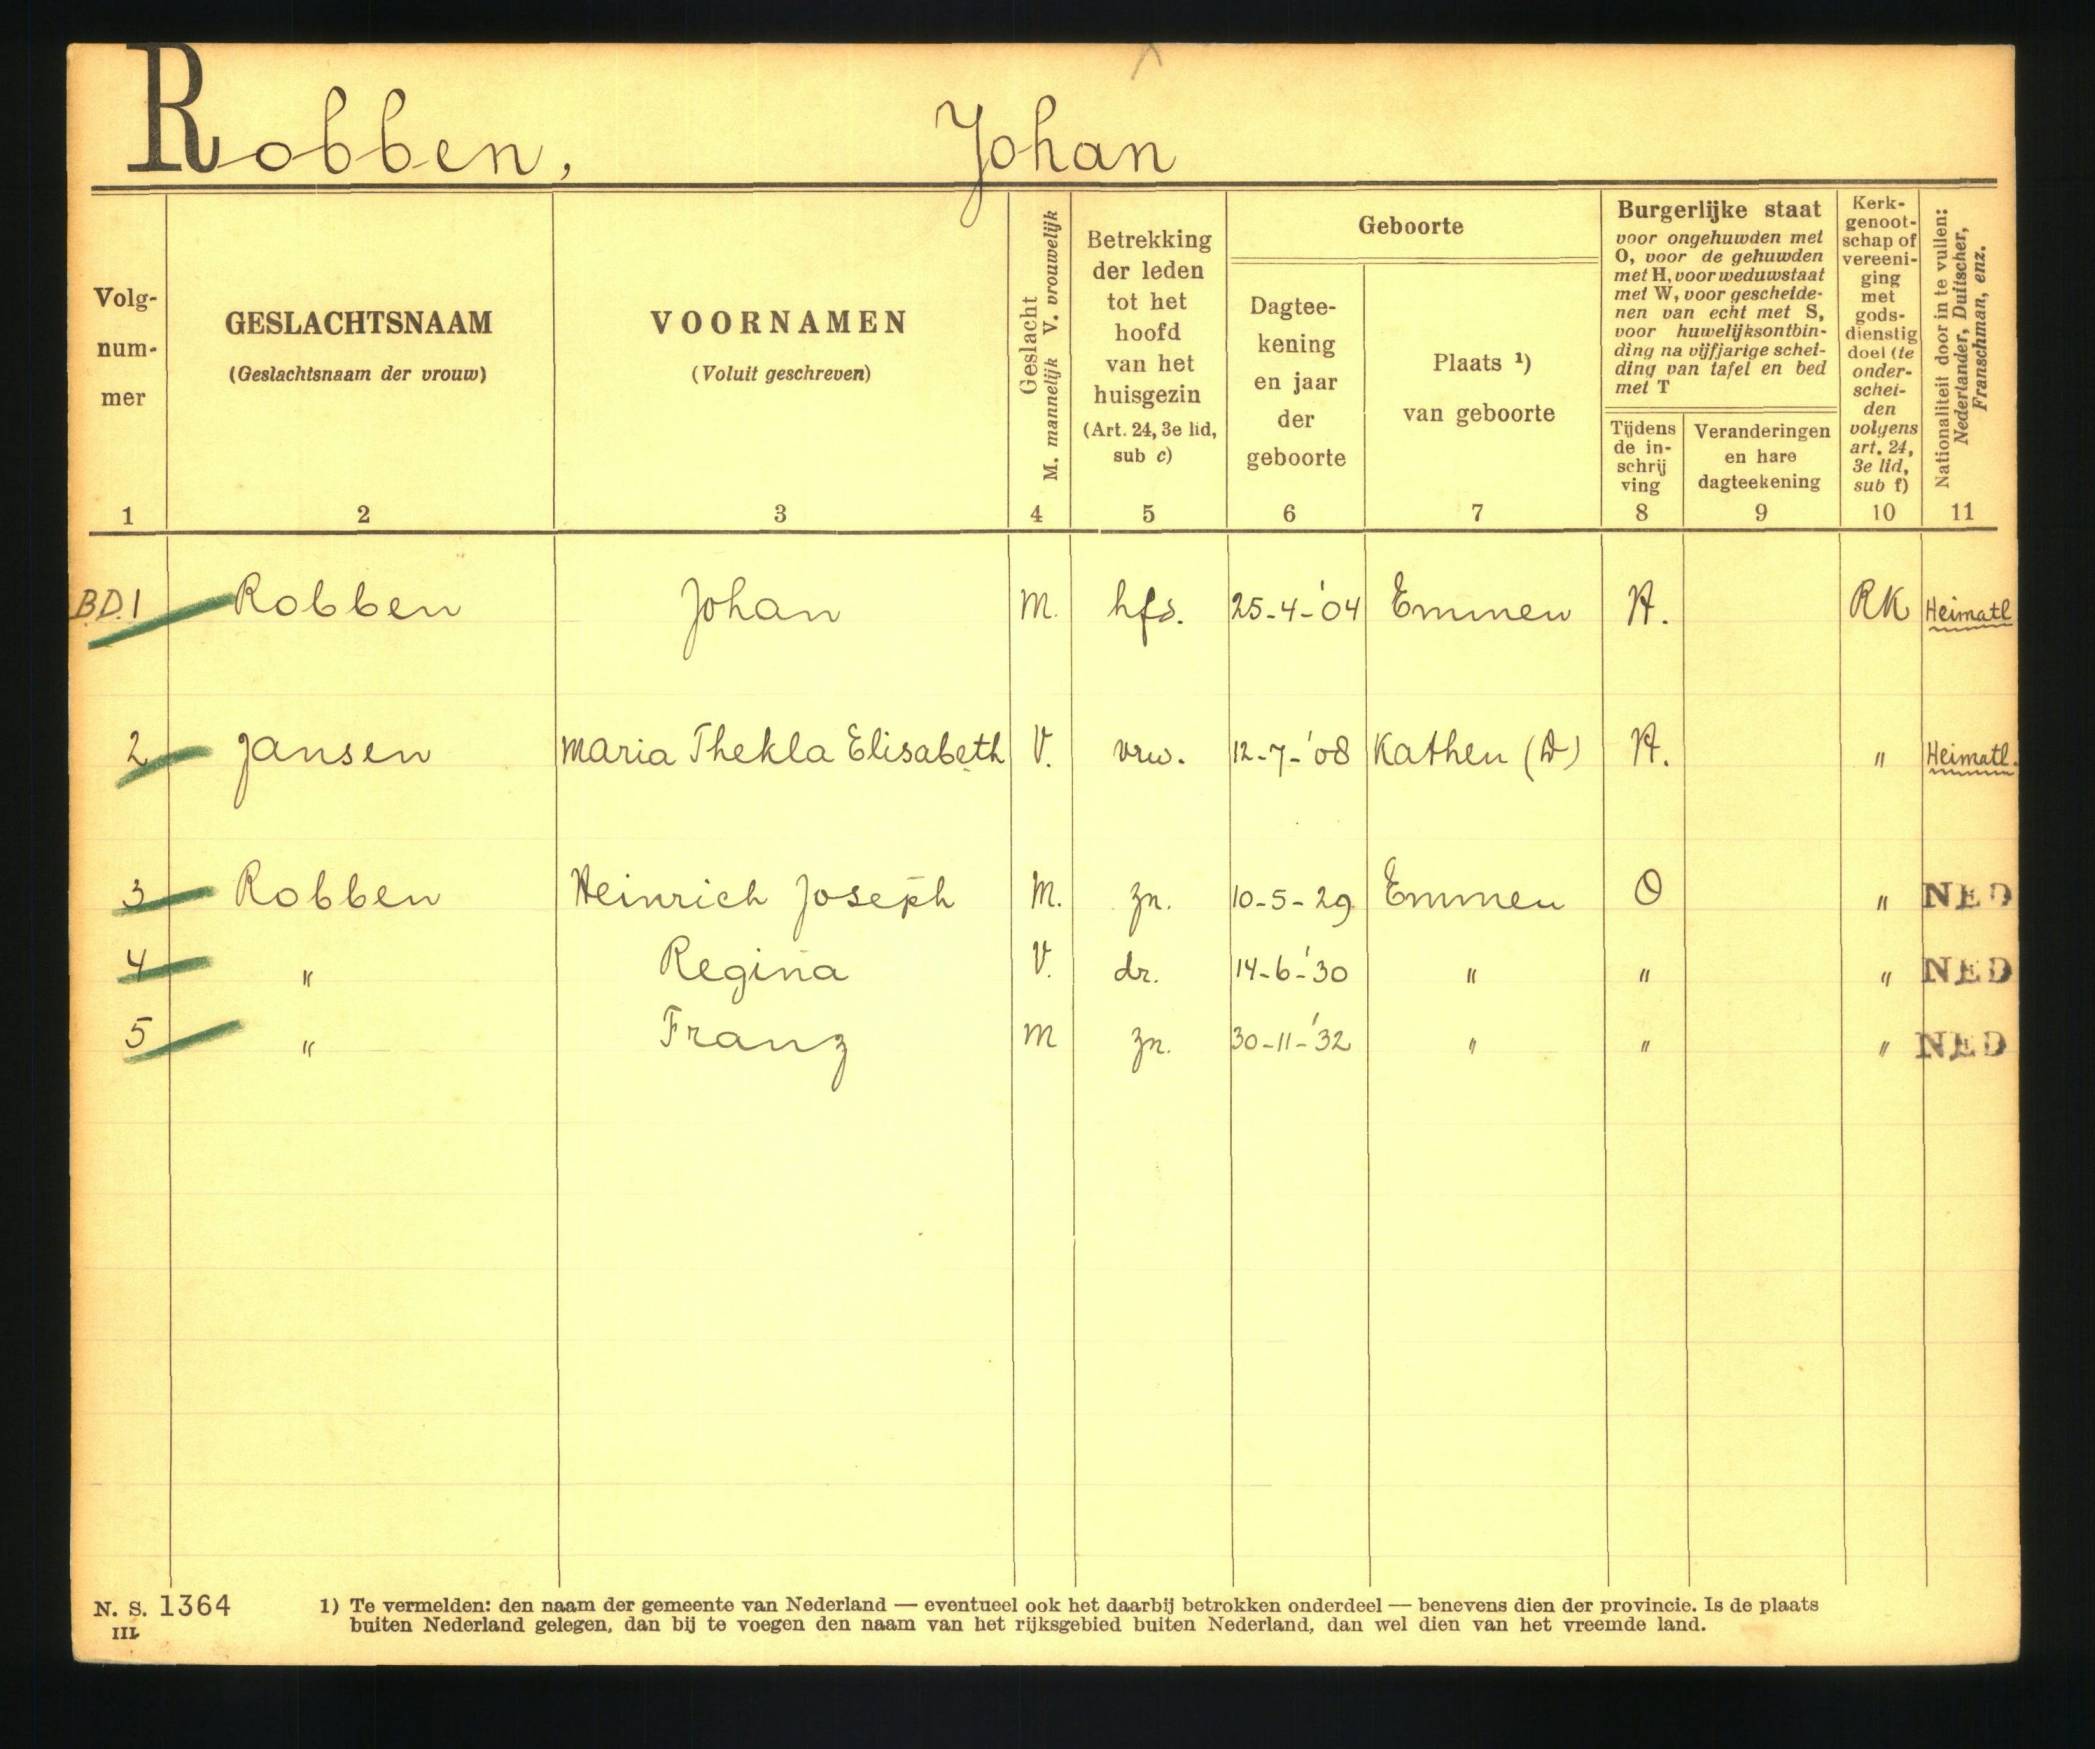 Robben, Johan
Volg-
num-
mer
1
GESLACHTSNAAM
(Geslachtsnaam der vrouw)
2
VOORNAMEN
(Voluit geschreven)
3
Geslacht
M. mannelijk V. vrouwelijk
4
Betrekking
der leden
tot het
hoofd
van het
huisgezin
(Art. 24, 3e lid,
sub c)
5
Geboorte
Dagtee-
kening
en jaar
der
geboorte
6
Plaats ¹)
van geboorte
7
Burgerlijke staat
voor ongehuwden met
O, voor de gehuwden
met H, voor weduwstaat
met W, voor gescheide-
nen van echt met S,
voor huwelijksontbin-
ding na vijfjarige schei-
ding van tafel en bed
met T
Tijdens
de in-
schrij
ving
8
Veranderingen
en hare
dagteekening
9
Kerk-
genoot-
schap of
vereeni-
ging
met
gods-
dienstig
doel (te
onder-
schei-
den
volgens
art. 24,
3e lid,
sub f)
10
Nationaliteit door in te vullen:
Nederlander, Duitscher,
Franschman, enz.
11
B.D.1 Robben Johan M. hfs. 25-4-'04 Emmen H. RK Heimatl
2 Jansen Maria Thekla Elisabeth V. vrw. 12-7-'08 Kathen (D) H. " Heimatl.
3 Robben Heinrich Joseph M. zn. 10-5-29 Emmen O " NED
4 " Regina V. dr. 14-6-'30 " " " NED
5 " Franz M zn. 30-11-'32 " " " NED
N. S. 1364
III
1) Te vermelden: den naam der gemeente van Nederland — eventueel ook het daarbij betrokken onderdeel — benevens dien der provincie. Is de plaats
buiten Nederland gelegen, dan bij te voegen den naam van het rijksgebied buiten Nederland, dan wel dien van het vreemde land.